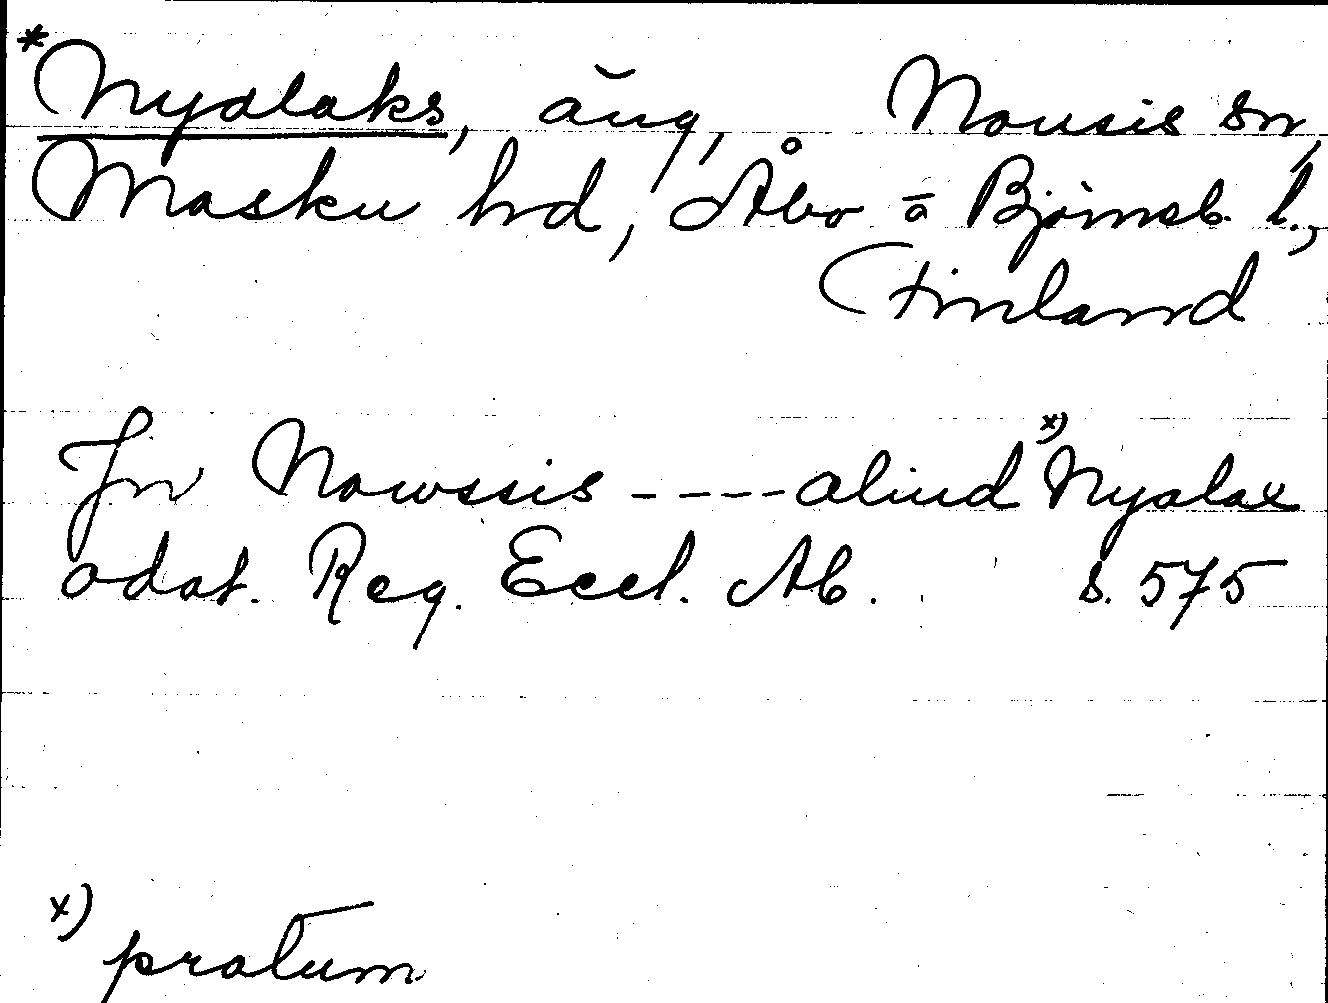 *Nyalaks, äng, Nousis sn,
Masku hd, Åbo o Björneb. l.,
Finland
Jn Nowssis ---- aliud x) Nyalax
odat. Reg. Eccl. Ab. s. 575
x) pratum